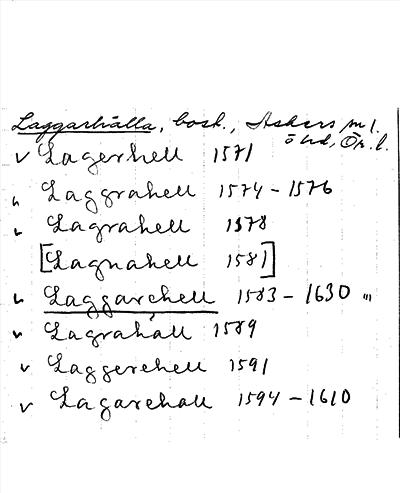 Laggarhälla, bosk., Askers sn 1.
ö hd, Ör. l.
Lagerhell 1571
Laggrahell 1574 - 1576
Lagrahell 1578
[Lagnahell 1581]
Laggarehell 1583 - 1630 "
Lagrahall 1589
Laggerehell 1591
Lagarehall 1594 - 1610